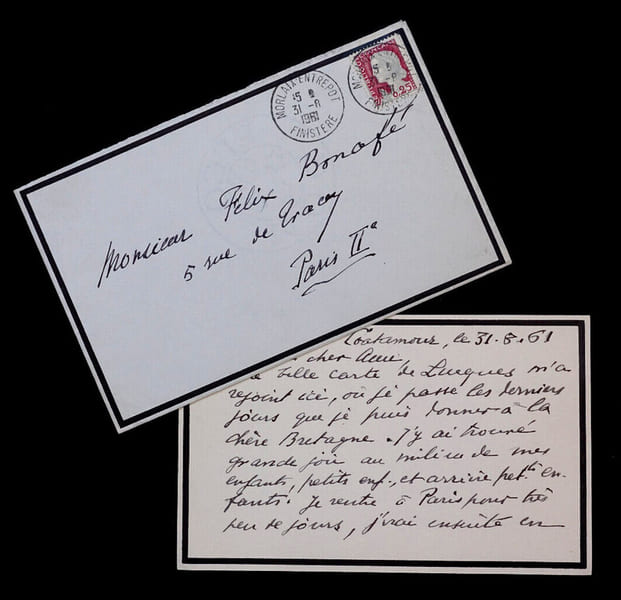 MORLAIX-ENTREPOT
15 H
31 -8
1961
FINISTERE
0,25
Monsieur Felix Bonafé
5 rue de Tracy
Paris IIe
Coatamour, le 31.8.61
cher Ami
belle carte de Lucques m'a
rejoint ici, où je passe les derniers
jours que je puis donner à la
chère Bretagne. J'y ai trouvé
grande joie au milieu de mes
enfants, petits enf., et arrière petits en-
fants. Je rentre à Paris pour très
peu de jours, j'irai ensuite en